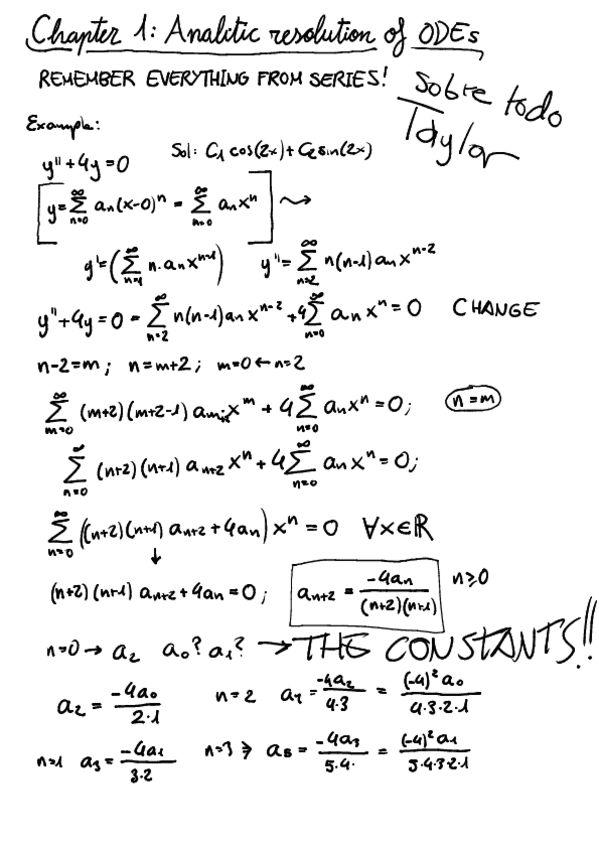 Chapter 1: Analitic resolution of ODEs
REMEMBER EVERYTHING FROM SERIES!
Sobre todo
Taylor
Example:
y''+4y=0 Sol: C₁cos(2x)+C₂sin(2x)
[y=∑_{n=0}^{∞} aₙ(x-0)ⁿ = ∑_{n=0}^{∞} aₙxⁿ] ⤳
y'=(∑_{n=1}^{∞} n·aₙxⁿ⁻¹) y''=∑_{n=2}^{∞} n(n-1)aₙxⁿ⁻²
y''+4y=0 = ∑_{n=2}^{∞} n(n-1)aₙxⁿ⁻² + 4∑_{n=0}^{∞} aₙxⁿ=0 CHANGE
n-2=m; n=m+2; m=0←n=2
∑_{m=0}^{∞} (m+2)(m+2-1)aₘ₊₂xᵐ + 4∑_{n=0}^{∞} aₙxⁿ=0; n=m
∑_{n=0}^{∞} (n+2)(n+1)aₙ₊₂xⁿ + 4∑_{n=0}^{∞} aₙxⁿ=0;
∑_{n=0}^{∞} ((n+2)(n+1)aₙ₊₂+4aₙ)xⁿ=0 ∀x∈ℝ
↓
(n+2)(n+1)aₙ₊₂+4aₙ=0; aₙ₊₂ = -4aₙ/((n+2)(n+1)) n≥0
n=0→a₂ a₀? a₁? → THE CONSTANTS!!
a₂ = -4a₀/(2·1) n=2 a₄ = -4a₂/(4·3) = (-4)²a₀/(4·3·2·1)
n=1 a₃ = -4a₁/(3·2) n=3 ⇒ a₅ = -4a₃/(5·4·) = (-4)²a₁/(5·4·3·2·1)